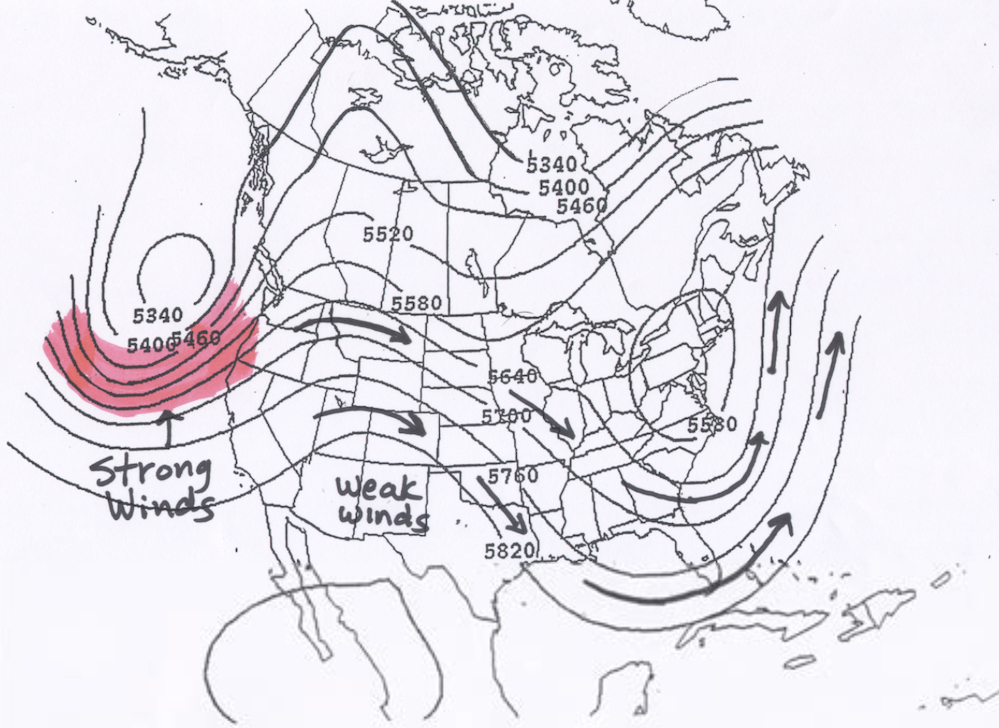 5340
5400
5460
5520
5580
5340
5400 5460
5640
5700
5580
Strong
Winds
5760
weak
winds
5820